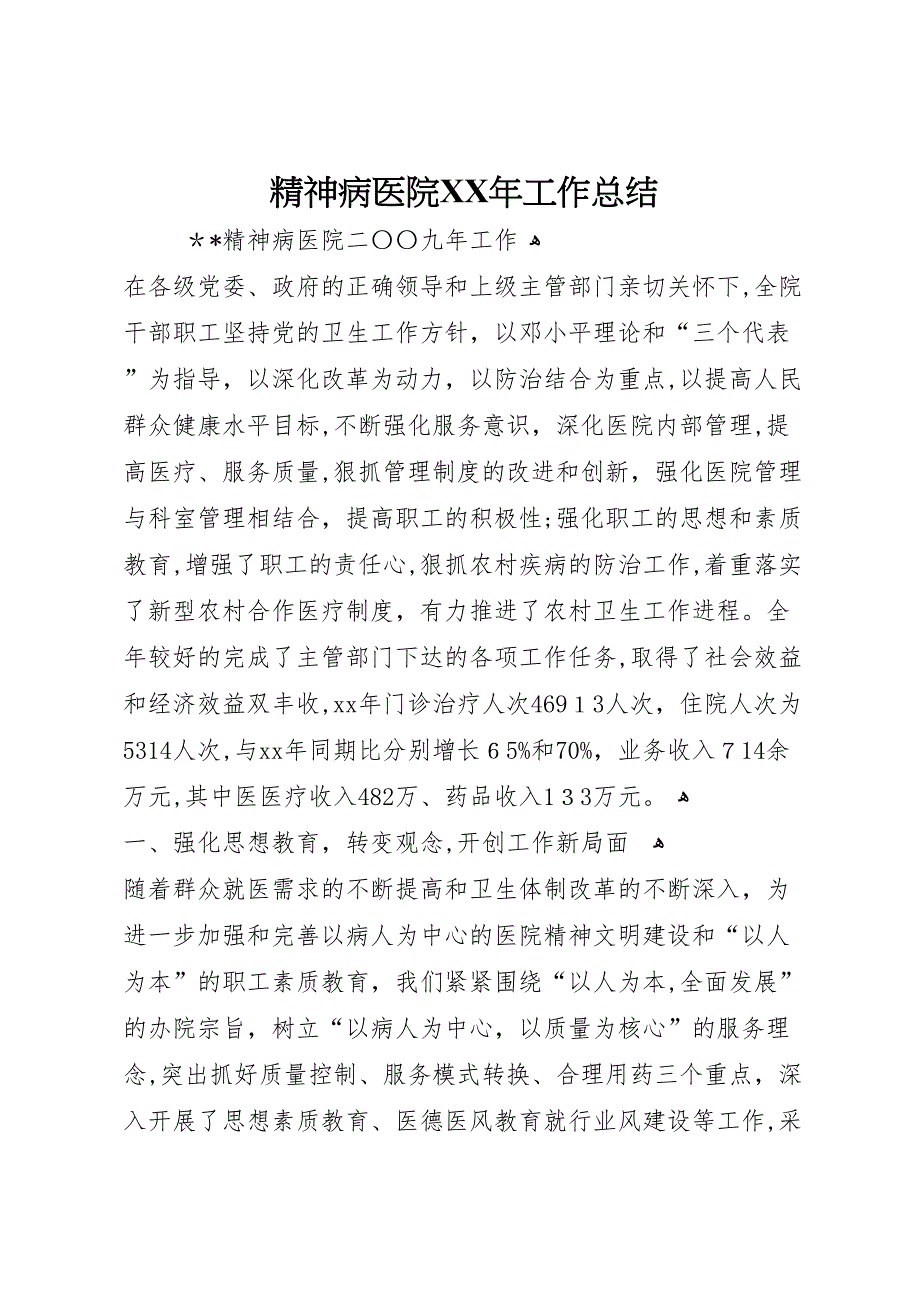 精神病医院XX年工作总结
＊*精神病医院二〇〇九年工作 ﻫ
在各级党委、政府的正确领导和上级主管部门亲切关怀下,全院
干部职工坚持党的卫生工作方针，以邓小平理论和“三个代表
”为指导，以深化改革为动力，以防治结合为重点,以提高人民
群众健康水平目标,不断强化服务意识，深化医院内部管理,提
高医疗、服务质量,狠抓管理制度的改进和创新，强化医院管理
与科室管理相结合，提高职工的积极性;强化职工的思想和素质
教育,增强了职工的责任心,狠抓农村疾病的防治工作,着重落实
了新型农村合作医疗制度，有力推进了农村卫生工作进程。全
年较好的完成了主管部门下达的各项工作任务,取得了社会效益
和经济效益双丰收,xx年门诊治疗人次469１3人次，住院人次为
5314人次,与xx年同期比分别增长６5%和70%，业务收入７14余
万元,其中医医疗收入482万、药品收入1３3万元。 ﻫ
一、强化思想教育，转变观念,开创工作新局面 ﻫ
随着群众就医需求的不断提高和卫生体制改革的不断深入，为
进一步加强和完善以病人为中心的医院精神文明建设和“以人
为本”的职工素质教育，我们紧紧围绕“以人为本,全面发展”
的办院宗旨，树立“以病人为中心，以质量为核心”的服务理
念,突出抓好质量控制、服务模式转换、合理用药三个重点，深
入开展了思想素质教育、医德医风教育就行业风建设等工作,采